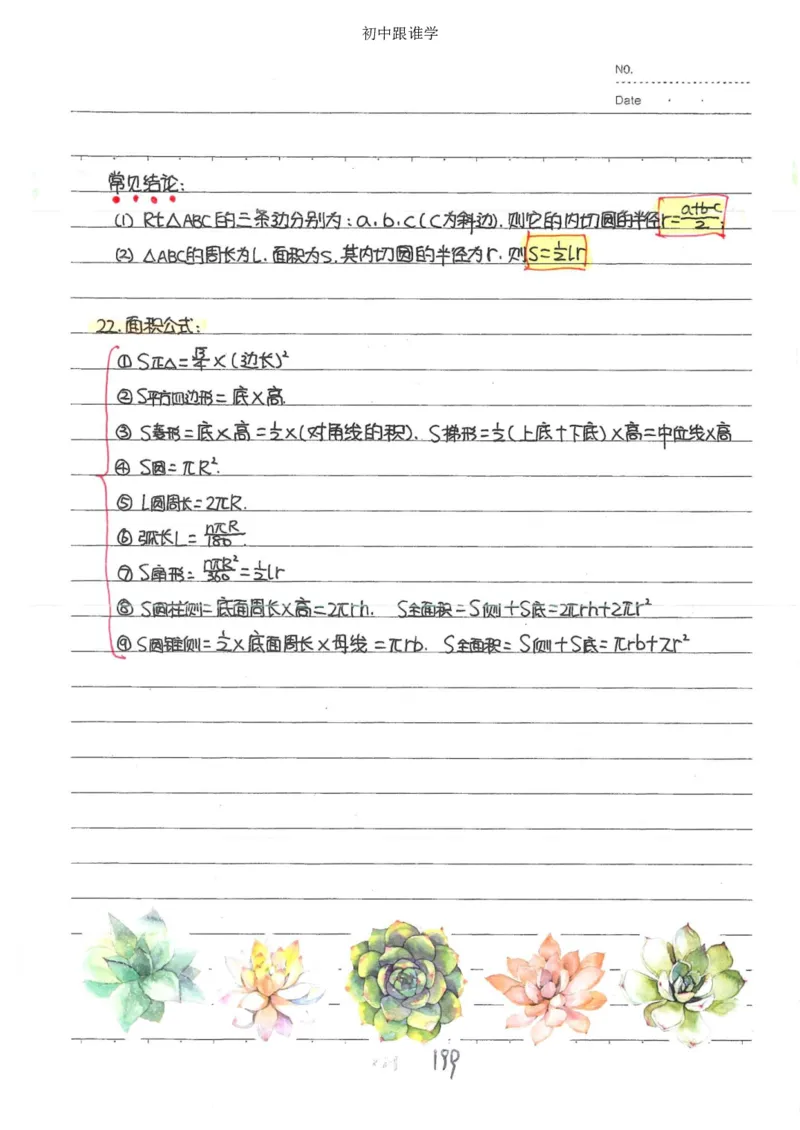 初中跟谁学
NO.
Date
常见结论:
(1) Rt△ABC的三条边分别为:a.b.c(c为斜边).则它的内切圆的半径r=\frac{a+b-c}{2};
(2) △ABC的周长为L.面积为S.其内切圆的半径为r.则S=\frac{1}{2}lr
22.面积公式:
① S正△=\frac{√3}{4}×(边长)²
② S平方四边形=底×高.
③ S菱形=底×高=\frac{1}{2}×(对角线的积). S梯形=\frac{1}{2}(上底+下底)×高=中位线×高
④ S圆=πR².
⑤ L圆周长=2πR.
⑥ 弧长L=\frac{nπR}{180}.
⑦ S扇形=\frac{nπR²}{360}=\frac{1}{2}lr
⑧ S圆柱侧=底面周长×高=2πrh. S全面积=S侧+S底=2πrh+2πr²
⑨ S圆锥侧=\frac{1}{2}×底面周长×母线=πrb. S全面积=S侧+S底=πrb+πr²
199